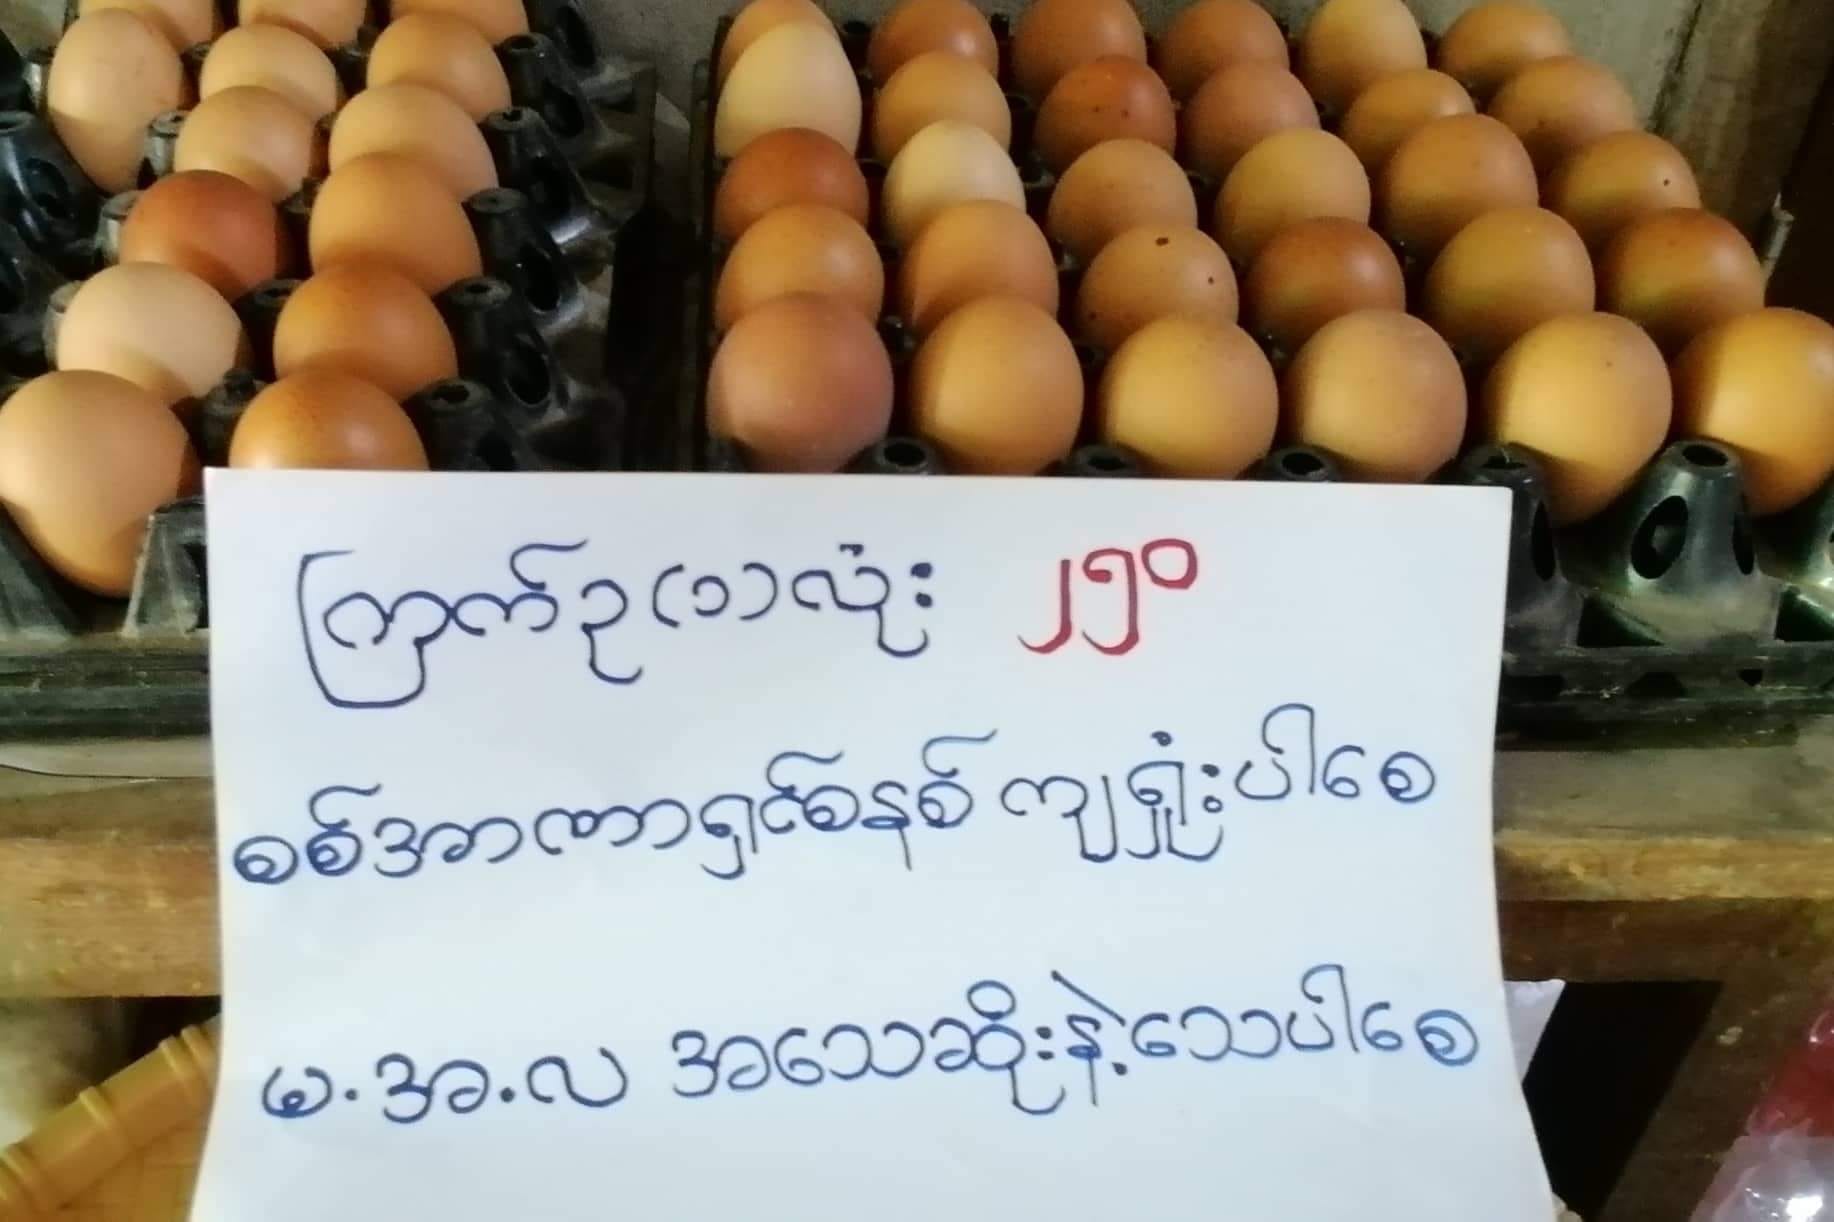 ကြက်ဥ(၁)လုံး ၂၅၀
စစ်အာဏာရှင်စနစ် ကျရှုံးပါစေ
မ.အ.လ အသေဆိုးနဲ့သေပါစေ